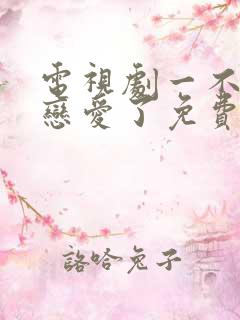 電視劇一不
戀愛了免費
詻哈兔子